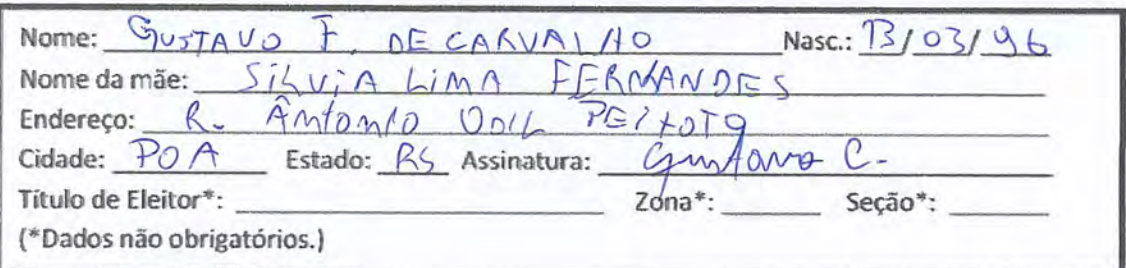 Nome: GUSTAVO F. DE CARVALHO Nasc.: 13/03/96
Nome da mãe: SILVIA LIMA FERNANDES
Endereço: R. Antonio PEIXOTO
Cidade: POA Estado: RS Assinatura: Gustavo C.
Título de Eleitor*: Zona*: Seção*:
(*Dados não obrigatórios.)